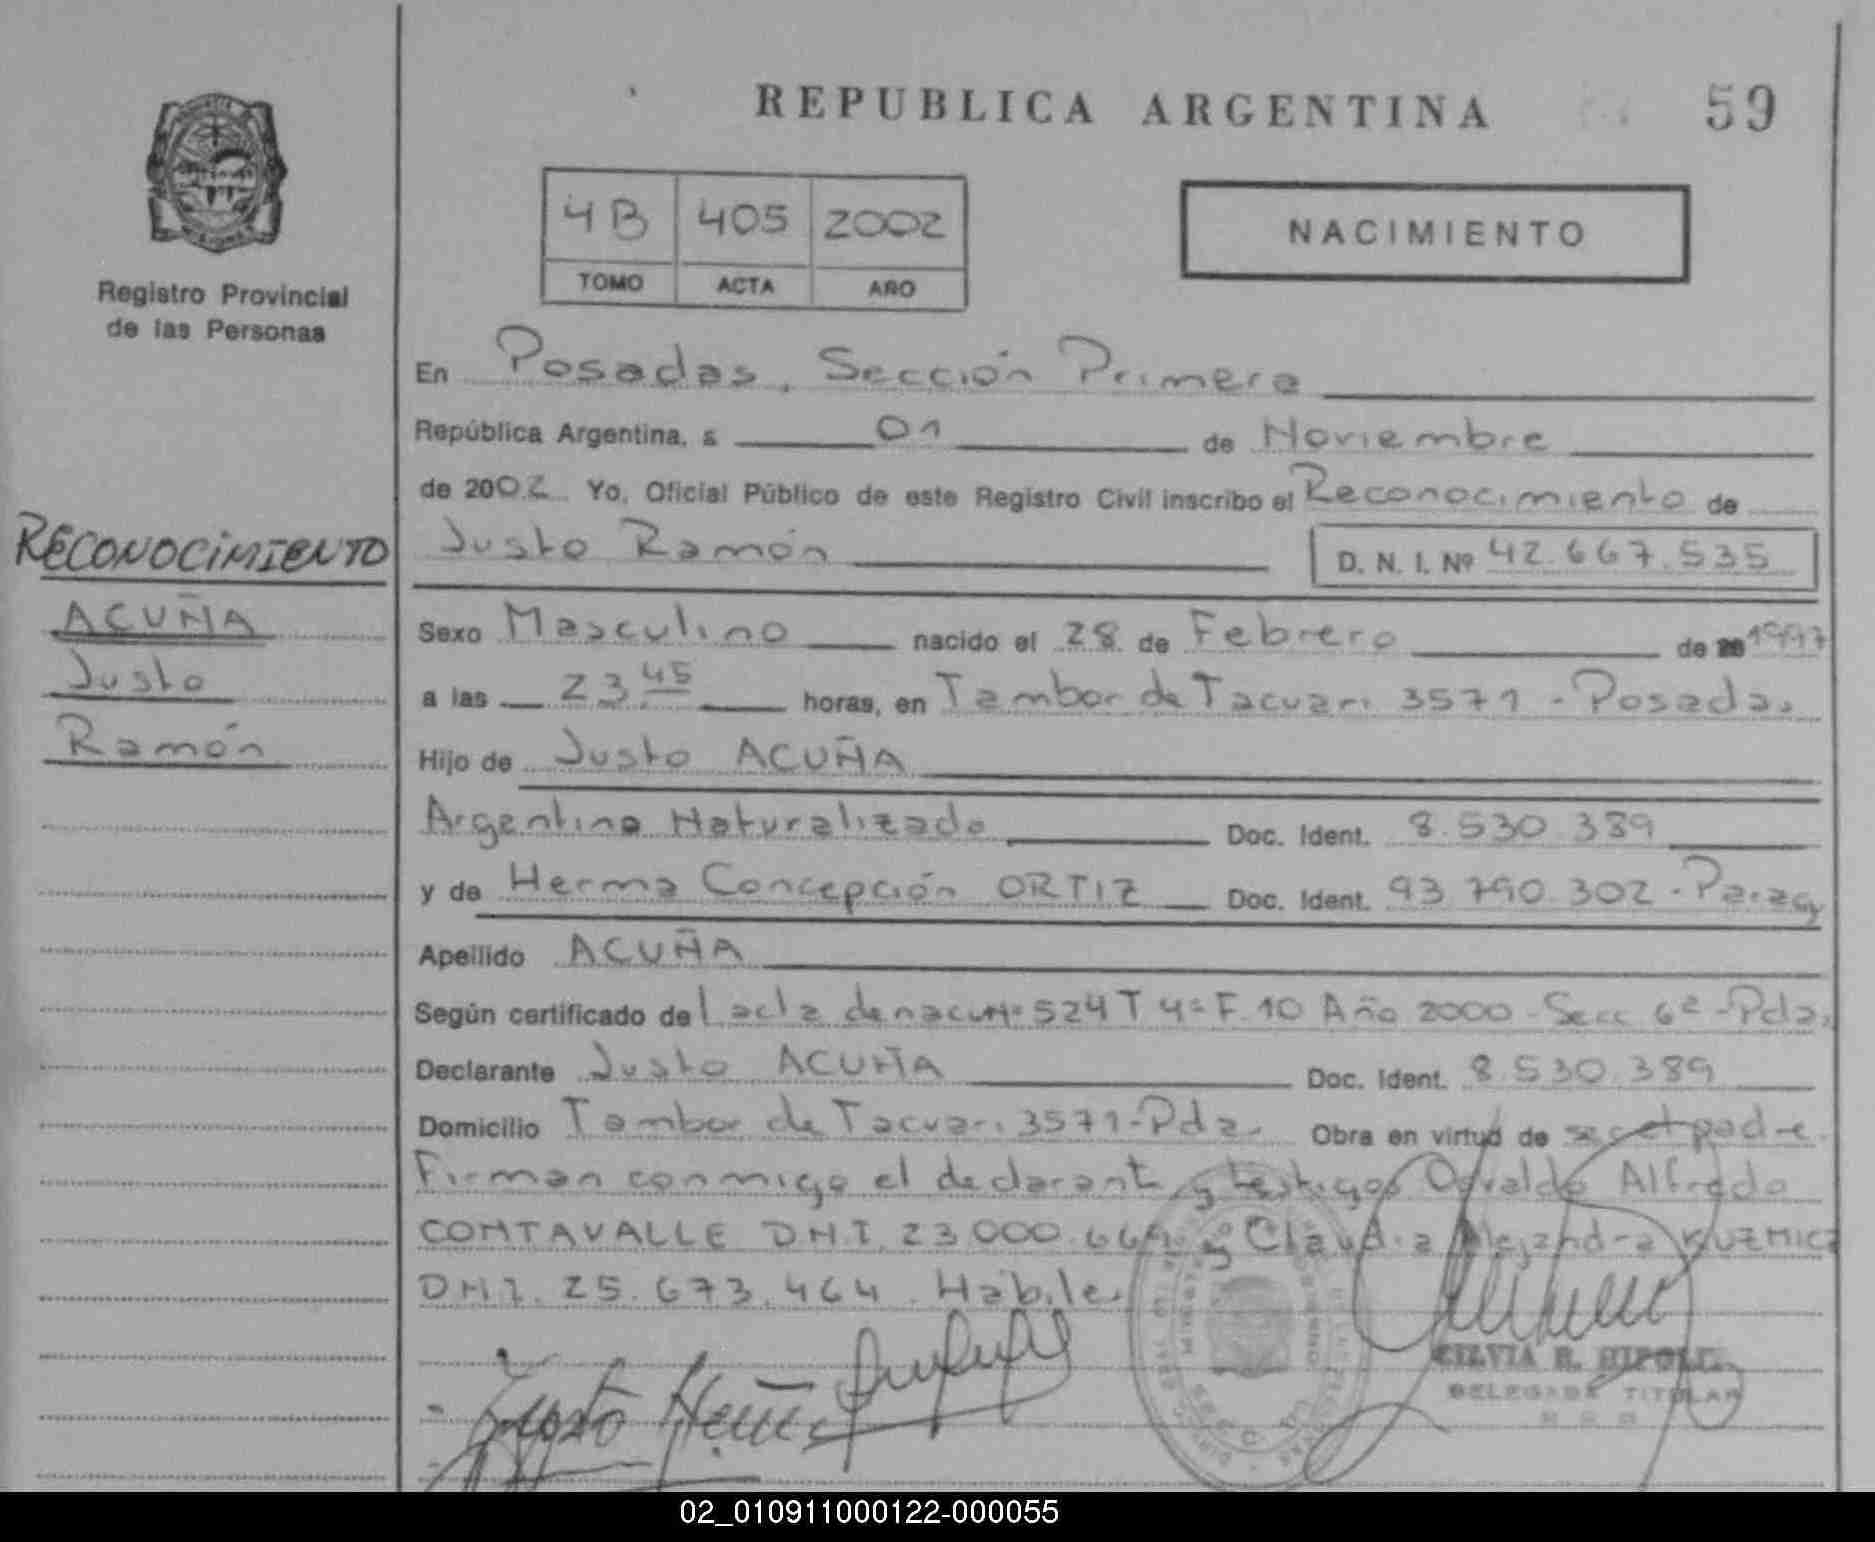 REPUBLICA ARGENTINA
59
4B 405 2002
TOMO ACTA AÑO
NACIMIENTO
Registro Provincial
de las Personas
RECONOCIMIENTO
ACUÑA
Justo
Ramón
En Posadas, Sección Primera
República Argentina, a 01 de Noviembre
de 2002 Yo, Oficial Público de este Registro Civil inscribo el Reconocimiento de
Justo Ramón D. N. I. Nº 42.667.535
Sexo Masculino nacido el 28 de Febrero de 20 1997
a las 23,45 horas, en Tambor de Tacuari 3571 - Posadas
Hijo de Justo ACUÑA
Argentino Naturalizado Doc. Ident. 8.530.389
y de Herma Concepción ORTIZ Doc. Ident. 93.790.302 - Paragy
Apellido ACUÑA
Según certificado del acta de nac Nº 524 T 4º F. 10 Año 2000 - Secc 6ª - Pdas
Declarante Justo ACUÑA Doc. Ident. 8.530.389
Domicilio Tambor de Tacuari 3571 - Pdas. Obra en virtud de ser el padre.
Firman conmigo el declarante y testigos Osvaldo Alfredo
CONTAVALLE DNI. 23.000. y Claudia Alejandra KUZMICZ
DNI. 25.673.464. Hábiles
DELEGADA TITULAR
02_010911000122-000055